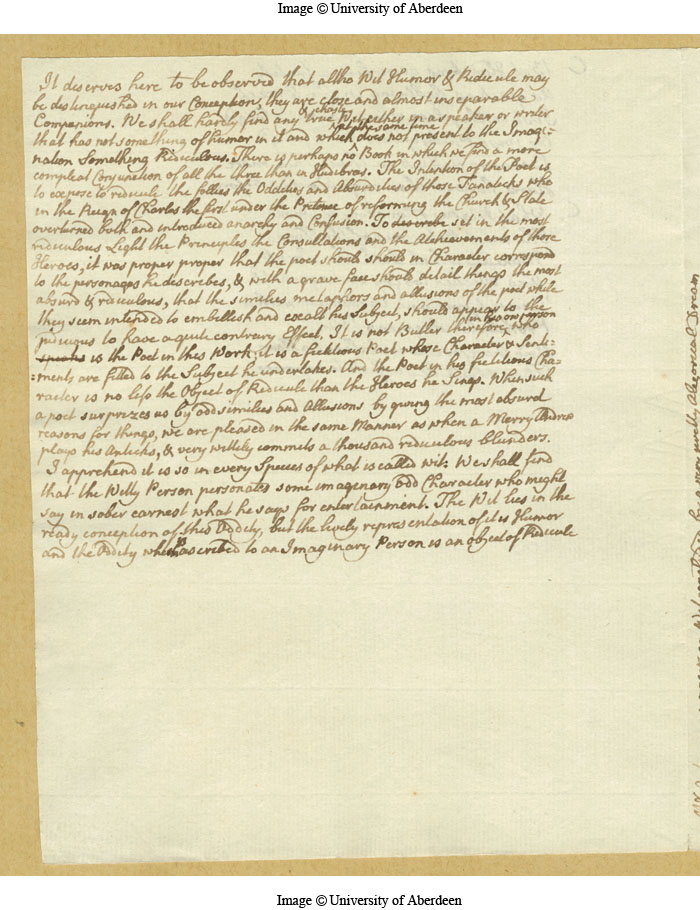 Image © University of Aberdeen
It deserves here to be observed that altho Wit Humor & Ridicule may
be distinguished in our Conception, they are close and almost inseparable
Companions. We shall hardly find any true & chaste Wit either in a speaker or writer
that has not something of humor in it and which at the same time does not present to the Imagi-
nation Something Ridiculous. There is perhaps no Book in which we find a more
compleat Conjunction of all the three than in Hudibras. The Intention of the Poet is
to expose to ridicule the follies the Oddities and Absurdities of those Fanaticks who
in the Reign of Charles the first under the Pretence of reforming the Church & State
overturned both and introduced anarchy and Confusion. To describe set in the most
ridiculous Light the Principles the Consultations and the Atchievements of those
Heroes, it was proper proper that the poet should should in Character correspond
to the personages he describes, & with a grave face should detail things the most
absurd & ridiculous, that the similies metaphors and allusions of the poet while
they seem intended to embellish and exalt his Subject, should appear to the
judicious to have a quite contrary Effect. It is not Butler therefore in his own person who
is the Poet in this Work, it is a fictitious Poet whose Character & Senti-
ments are fitted to the Subject he undertakes. And the Poet in his fictitious Cha-
racter is no less the Object of Ridicule than the Heroes he Sings. When such
a poet surprizes us by odd similies and Allusions by giving the most absurd
reasons for things, we are pleased in the same Manner as when a Merry Andrew
plays his Anticks, & very wittily commits a thousand ridiculous blunders.
I apprehend it is so in every Species of what is called wit: We shall find
that the Witty Person personates some imaginary odd Character who might
say in sober earnest what he says for entertainment. The Wit lies in the
ready conception of this Oddity, but the lively representation of it is Humor
and the Oddity which is ascribed to an Imaginary Person is an object of Ridicule
Allegorical Dream
Image © University of Aberdeen